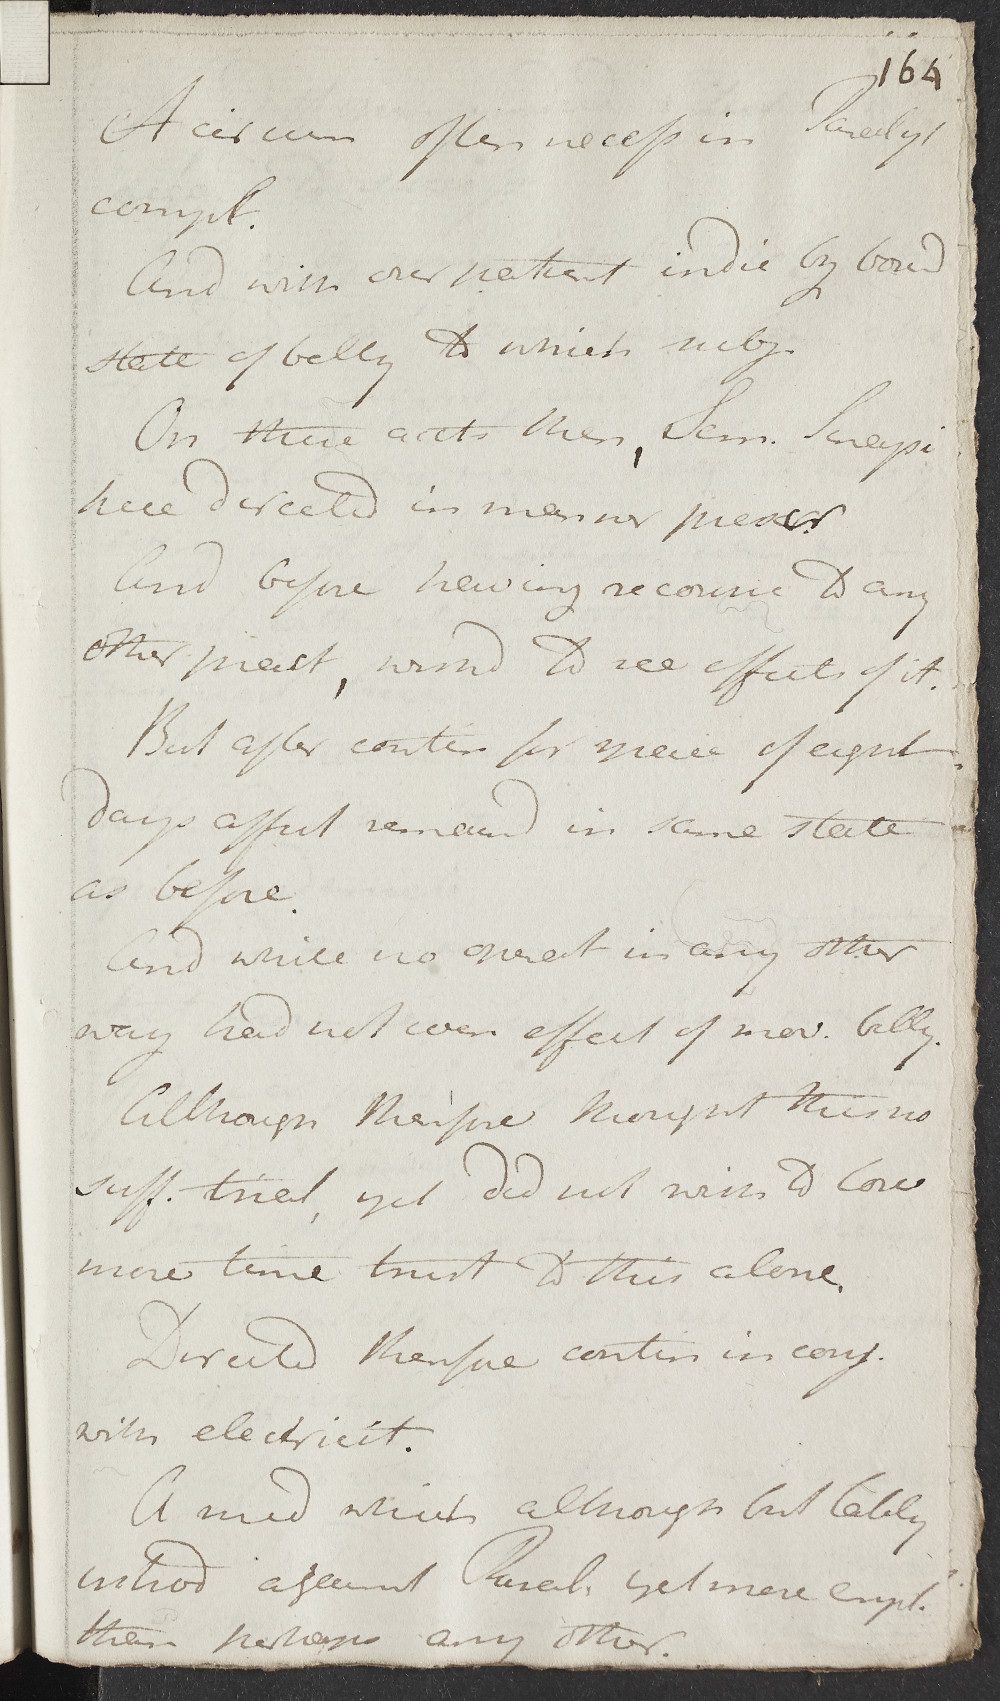 164
A circum often necess in Paralyt
compt.
And with our patient indic by bound
state of belly to which subj.
On these accts then, Sem. Sinapi
here directed in manner prescr
And before having recourse to any
other pract, wishd to see effects of it.
But after contin for space of eight
days affect remaind in same state
as before.
And while no operat in any other
way had not even effect of mov. belly.
Although therefore thought this no
suff. trial, yet did not wish to lose
more time trust to this alone.
Directed therefore contin in conj.
with electricit.
A med which although but lately
introd against Paral. yet more empl.
than perhaps any other.